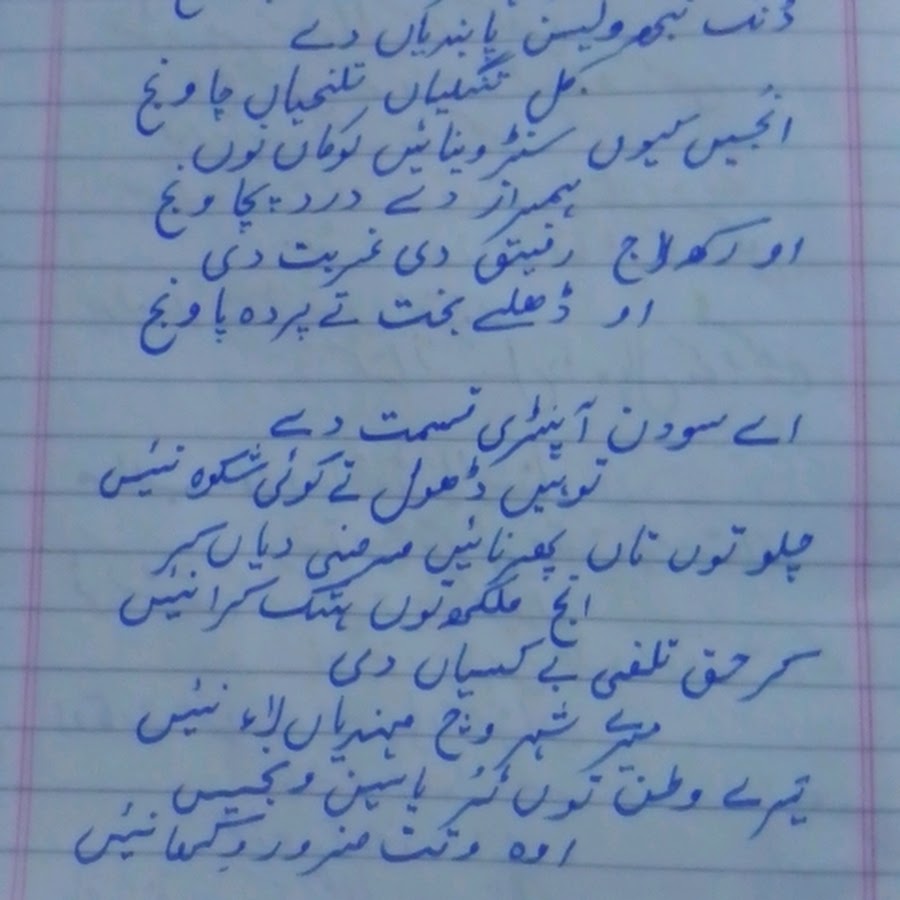 ڈنگ نبھ ویسن پابندیاں دے
کل تنگیاں تلخیاں چا ونج
انجیں کیوں سنڑوینائیں لوکاں توں
ہمراز دے درد بچا ونج
او رکھ لاج رفیق دی غربت دی
او ڈھلے بخت تے پردہ پا ونج
اے سودن آپنڑی قسمت دے
توہیں ڈھول تے کوئی شکوہ نئیں
چلو توں تاں پھرنائیں مرضی دیاں
انج ملکھ توں ہتک کرا نئیں
کر حق تلفی بے کسیاں دی
میرے شہر وچ مہندیاں لاء نئیں
تیرے وطن توں ٹر یاسین ونجیں
اوہ وقت ضرور وکھا نئیں